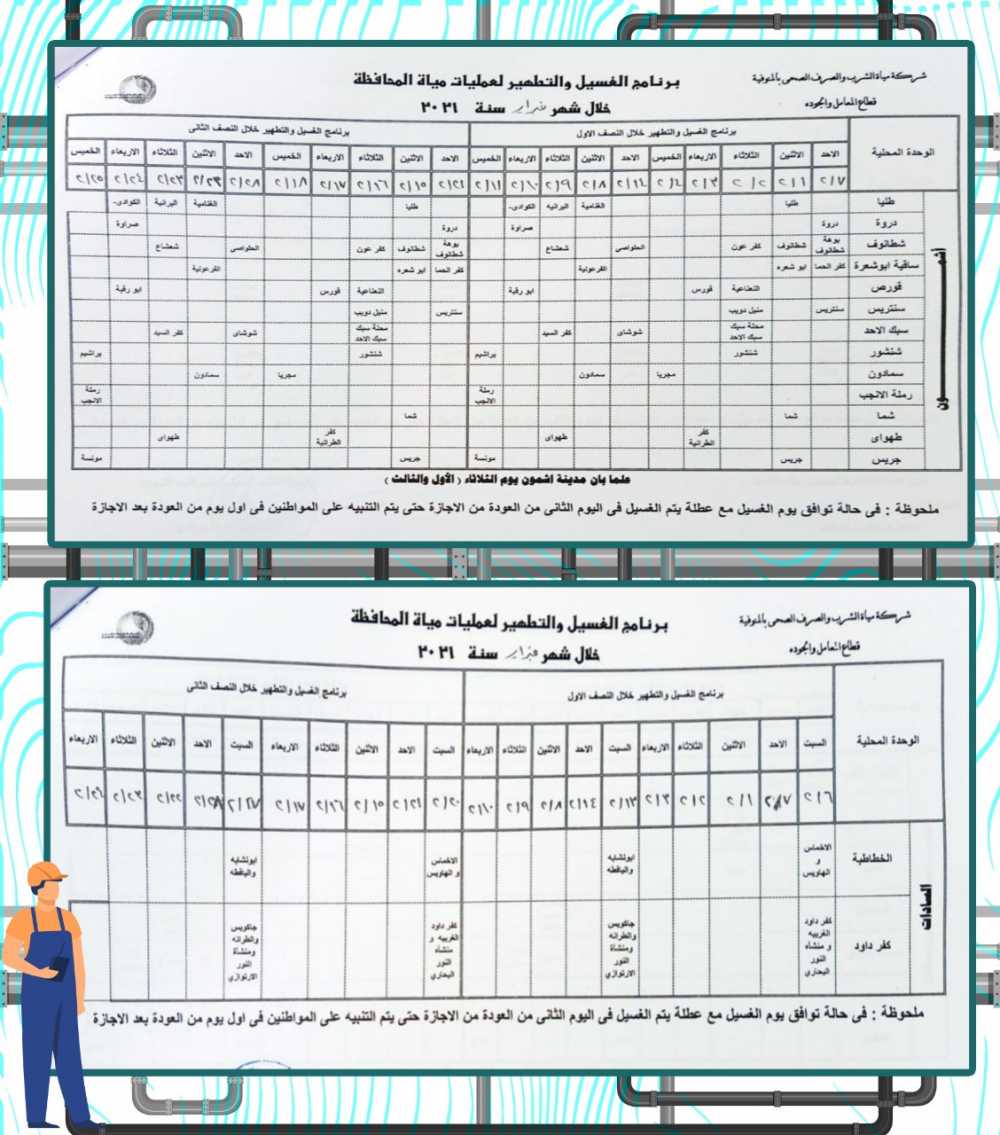 شركة مياة الشرب والصرف الصحى بالمنوفية
قطاع المعامل والجوده
برنامج الغسيل والتطهير لعمليات مياة المحافظة
خلال شهر فبراير سنة ٢٠٢١
الوحدة المحلية
برنامج الغسيل والتطهير خلال النصف الاول
برنامج الغسيل والتطهير خلال النصف الثانى
الاحد الاثنين الثلاثاء الاربعاء الخميس الاحد الاثنين الثلاثاء الاربعاء الخميس الاحد الاثنين الثلاثاء الاربعاء الخميس الاحد الاثنين الثلاثاء الاربعاء الخميس
٢/٧ ٢/١ ٢/٢ ٢/٣ ٢/٤ ٢/١٤ ٢/٨ ٢/٩ ٢/١٠ ٢/١١ ٢/٢١ ٢/١٥ ٢/١٦ ٢/١٧ ٢/١٨ ٢/٢٨ ٢/٢٣ ٢/٢٤ ٢/٢٥
أشمـــون
طليا طليا الغنامية البرانيه الكوادى طليا الغنامية البرانية الكوادى
دروة دروة صراوة دروة صراوة
شطانوف بوهة شطانوف شطانوف كفر عون الحلواصى شعشاع بوهة شطانوف شطانوف كفر عون الحلواصى شعشاع
ساقية ابوشعرة كفر الحما ابو شعره الفرعونية كفر الحما ابو شعره الفرعونية
قورص النعناعية قورس ابو رقبة النعناعية قورس ابو رقبة
سنتريس سنتريس منيل دويب سنتريس منيل دويب
سبك الاحد محلة سبك سبك الاحد شوشاى كفر السيد محلة سبك سبك الاحد شوشاى كفر السيد
شنشور شنشور براشيم شنشور براشيم
سمادون مجريا سمادون مجريا سمادون
رملة الانجب رملة الانجب رملة الانجب
شما شما شما
طهواى كفر الطرانية طهواى كفر الطرانية طهواى
جريس جريس مونسة جريس مونسة
علما بان مدينة اشمون يوم الثلاثاء ( الأول والثالث )
ملحوظة : فى حالة توافق يوم الغسيل مع عطلة يتم الغسيل فى اليوم الثانى من العودة من الاجازة حتى يتم التنبيه على المواطنين فى اول يوم من العودة بعد الاجازة
شركة مياة الشرب والصرف الصحى بالمنوفية
قطاع المعامل والجوده
برنامج الغسيل والتطهير لعمليات مياة المحافظة
خلال شهر فبراير سنة ٢٠٢١
الوحدة المحلية
برنامج الغسيل والتطهير خلال النصف الاول
برنامج الغسيل والتطهير خلال النصف الثانى
السبت الاحد الاثنين الثلاثاء الاربعاء السبت الاحد الاثنين الثلاثاء الاربعاء السبت الاحد الاثنين الثلاثاء الاربعاء السبت الاحد الاثنين الثلاثاء الاربعاء
٢/٦ ٢/٧ ٢/١ ٢/٢ ٢/٣ ٢/١٣ ٢/١٤ ٢/٨ ٢/٩ ٢/١٠ ٢/٢٠ ٢/٢١ ٢/١٥ ٢/١٦ ٢/١٧ ٢/٢٧ ٢/٢٨ ٢/٢٢ ٢/٢٣ ٢/٢٤
السادات
الخطاطبة الاخماس و الهاويس ابونشابه والباقطه الاخماس و الهاويس ابونشابه والباقطه
كفر داود كفر داود الغربيه و منشأه النور البحاري جاكويس والطرانه ومنشأة النور الارتوازي كفر داود الغربيه و منشأه النور البحاري جاكويس والطرانه ومنشأة النور الارتوازي
ملحوظة : فى حالة توافق يوم الغسيل مع عطلة يتم الغسيل فى اليوم الثانى من العودة من الاجازة حتى يتم التنبيه على المواطنين فى اول يوم من العودة بعد الاجازة